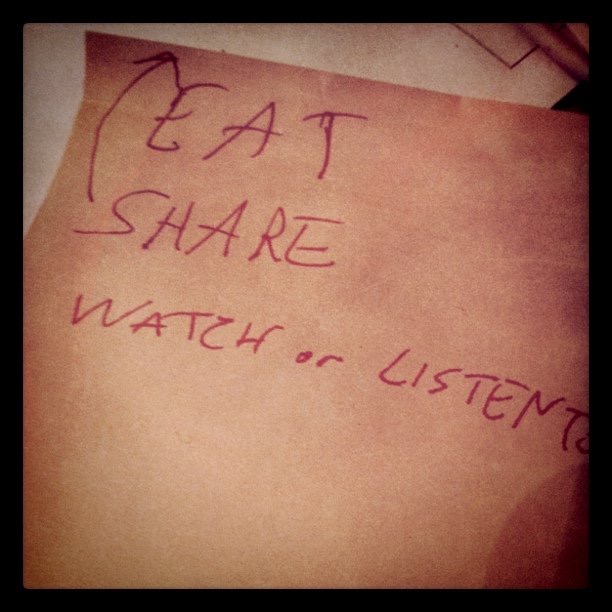 EAT
SHARE
WATCH or LISTEN